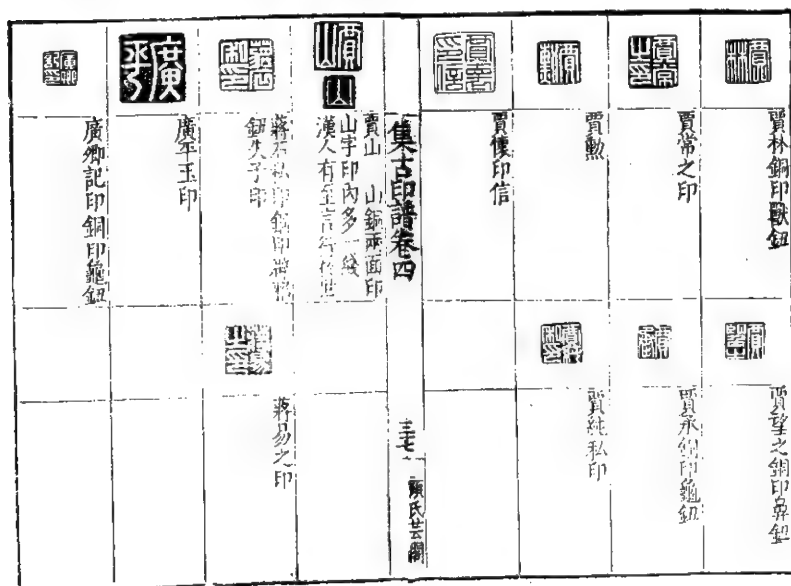 賈林銅印獸鈕
賈望之銅印鼻鈕
賈常之印
賈承銅印龜鈕
賈勳
賈純私印
賈懷印信
集古印譜卷四
三七
顧氏芸閣
賈山 山銅兩面印
山字印內多一綫
漢人有至言
蔣石私印銅印
鈕失子印
蔣易之印
廣平玉印
廣卿記印銅印龜鈕